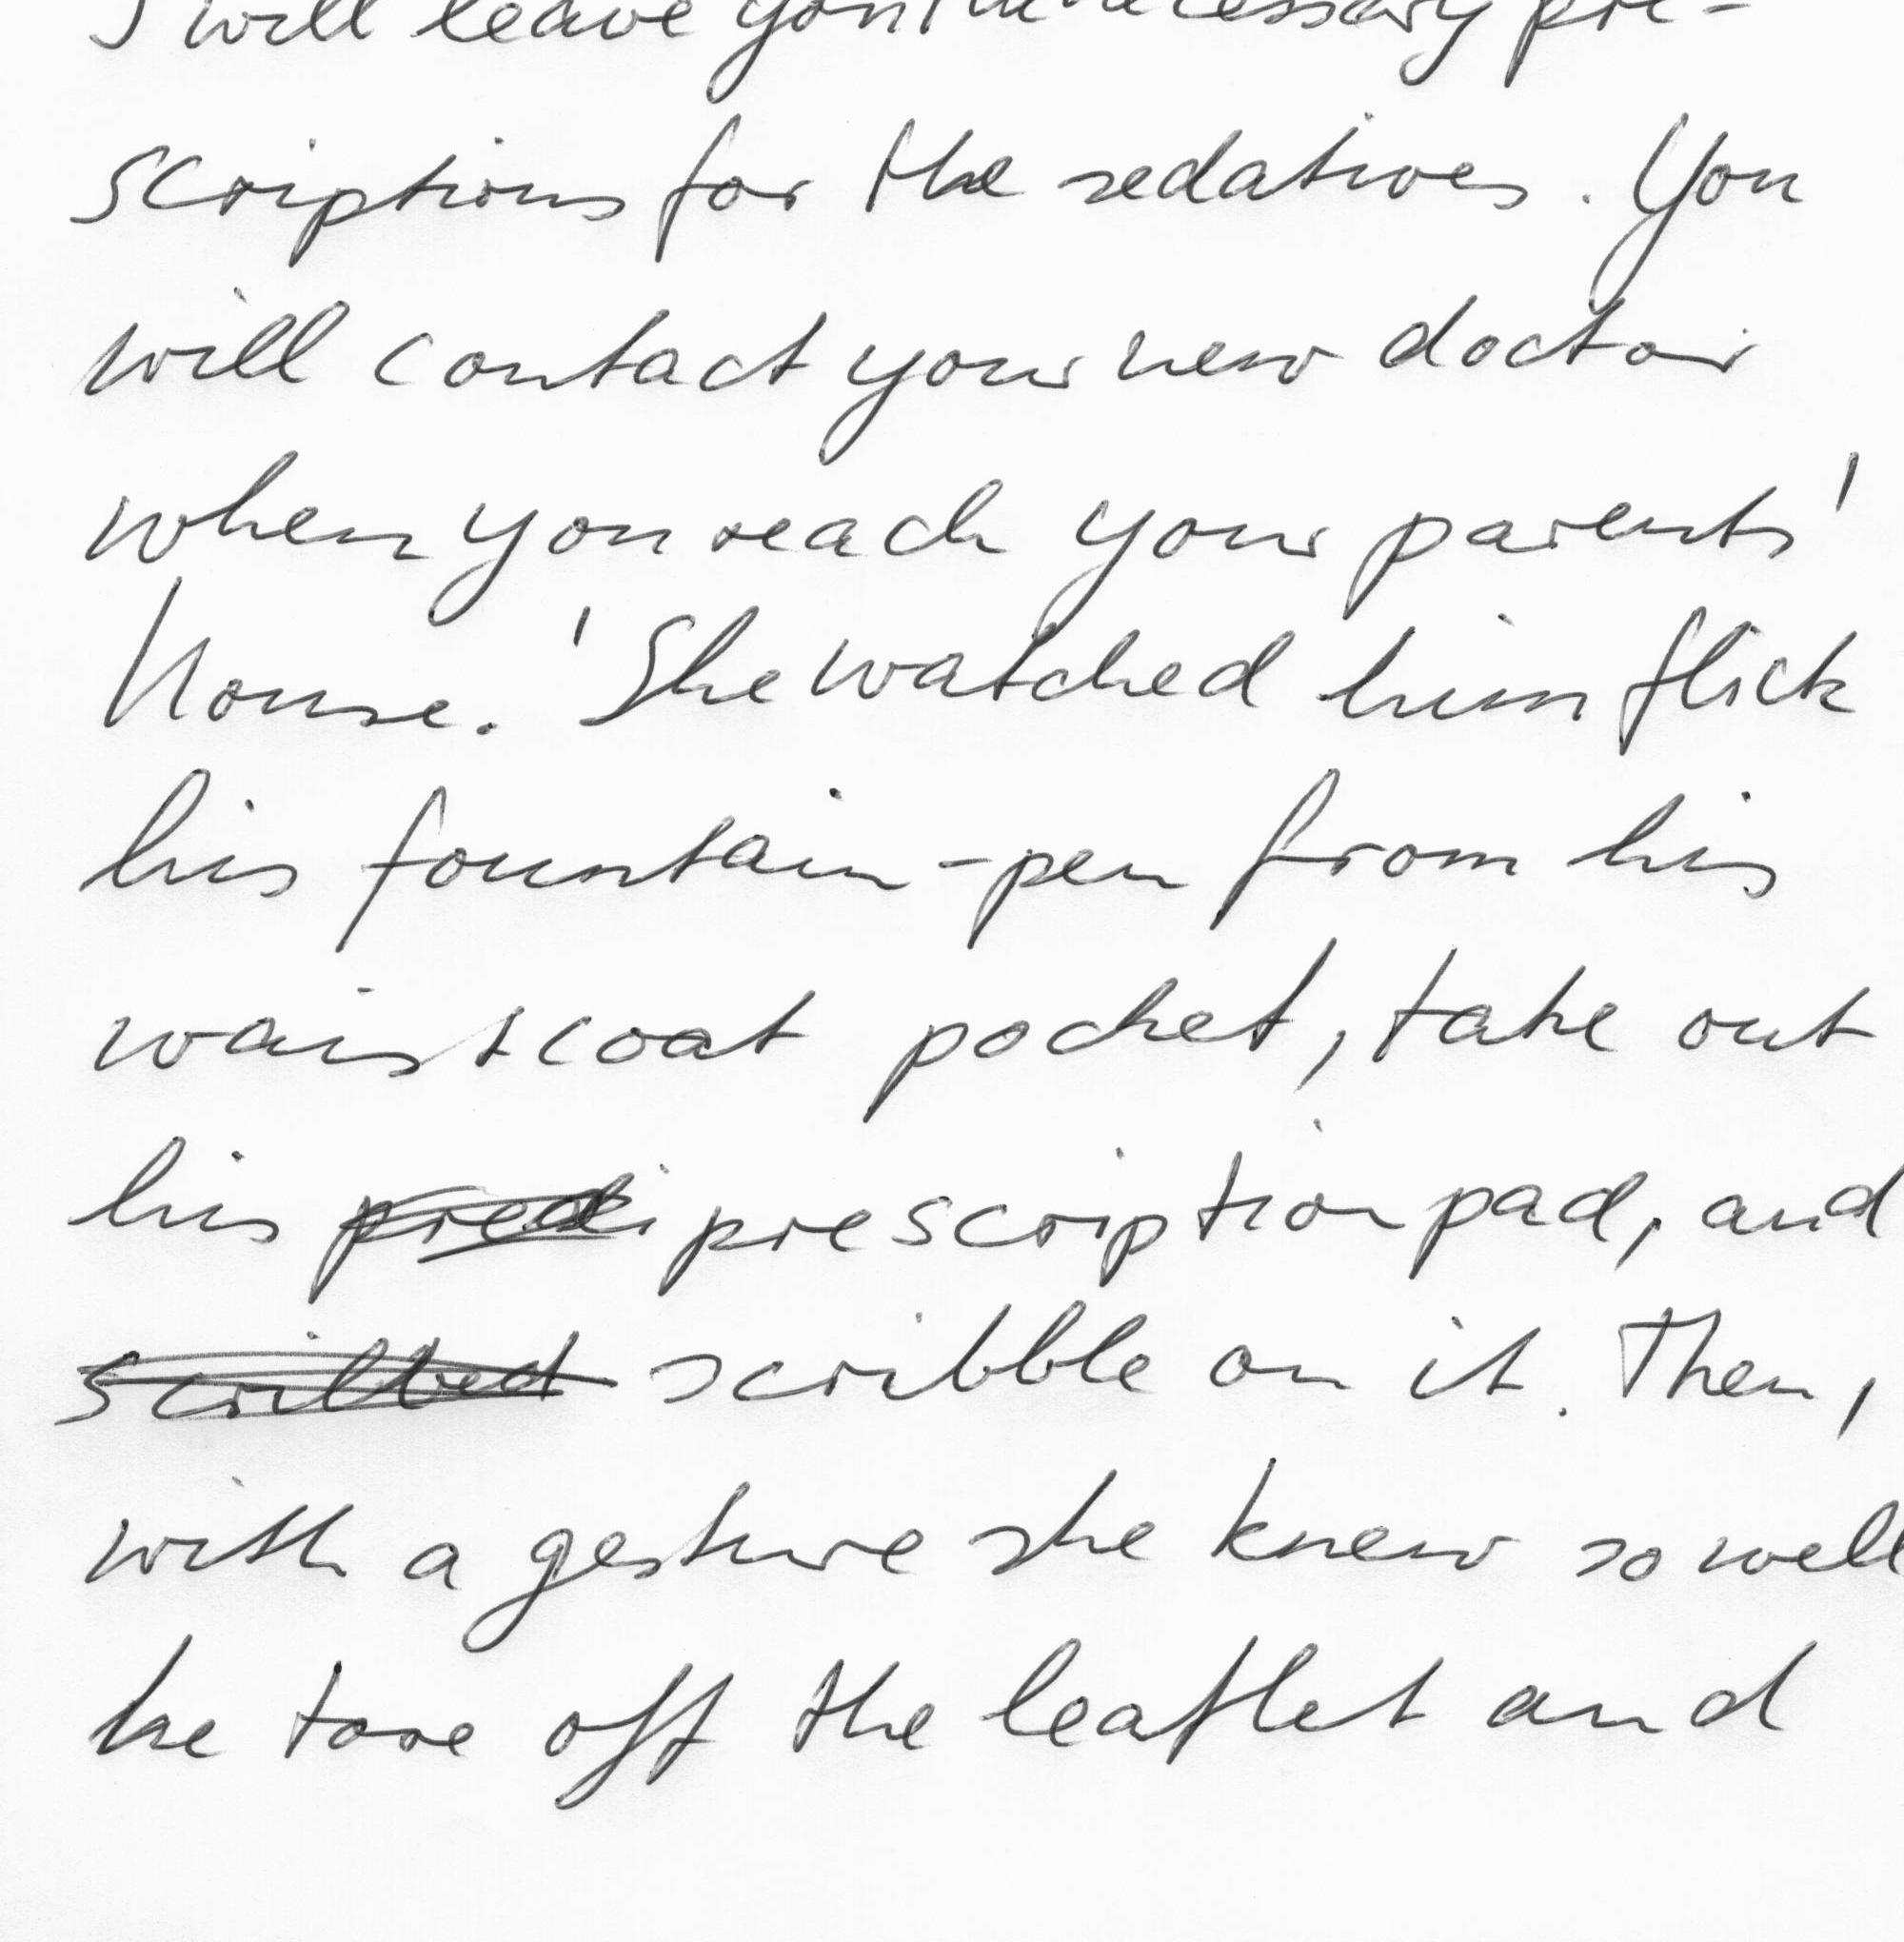 I will leave you the necessary pre-
scriptions for the sedatives. You
will contact your new doctor
when you reach your parents'
house.' She watched him flick
his fountain-pen from his
waistcoat pocket, take out
his prescription pad, and
scribbed scribble on it. Then,
with a gesture she knew so well
he tore off the leaflet and